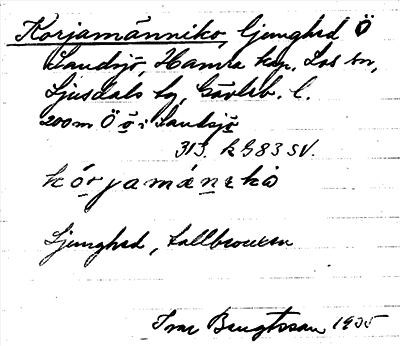 Korjamänniko, ljunghed Ö
Sandsjö, Hamra kap. Los sn,
Ljusdals tg, Gävleb. l.
200 m Ö ö i Sandsjö
31S. R 583 SV.
kórjamánikò
Ljunghed, tallbrouen
Ivar Bengtsson 1935